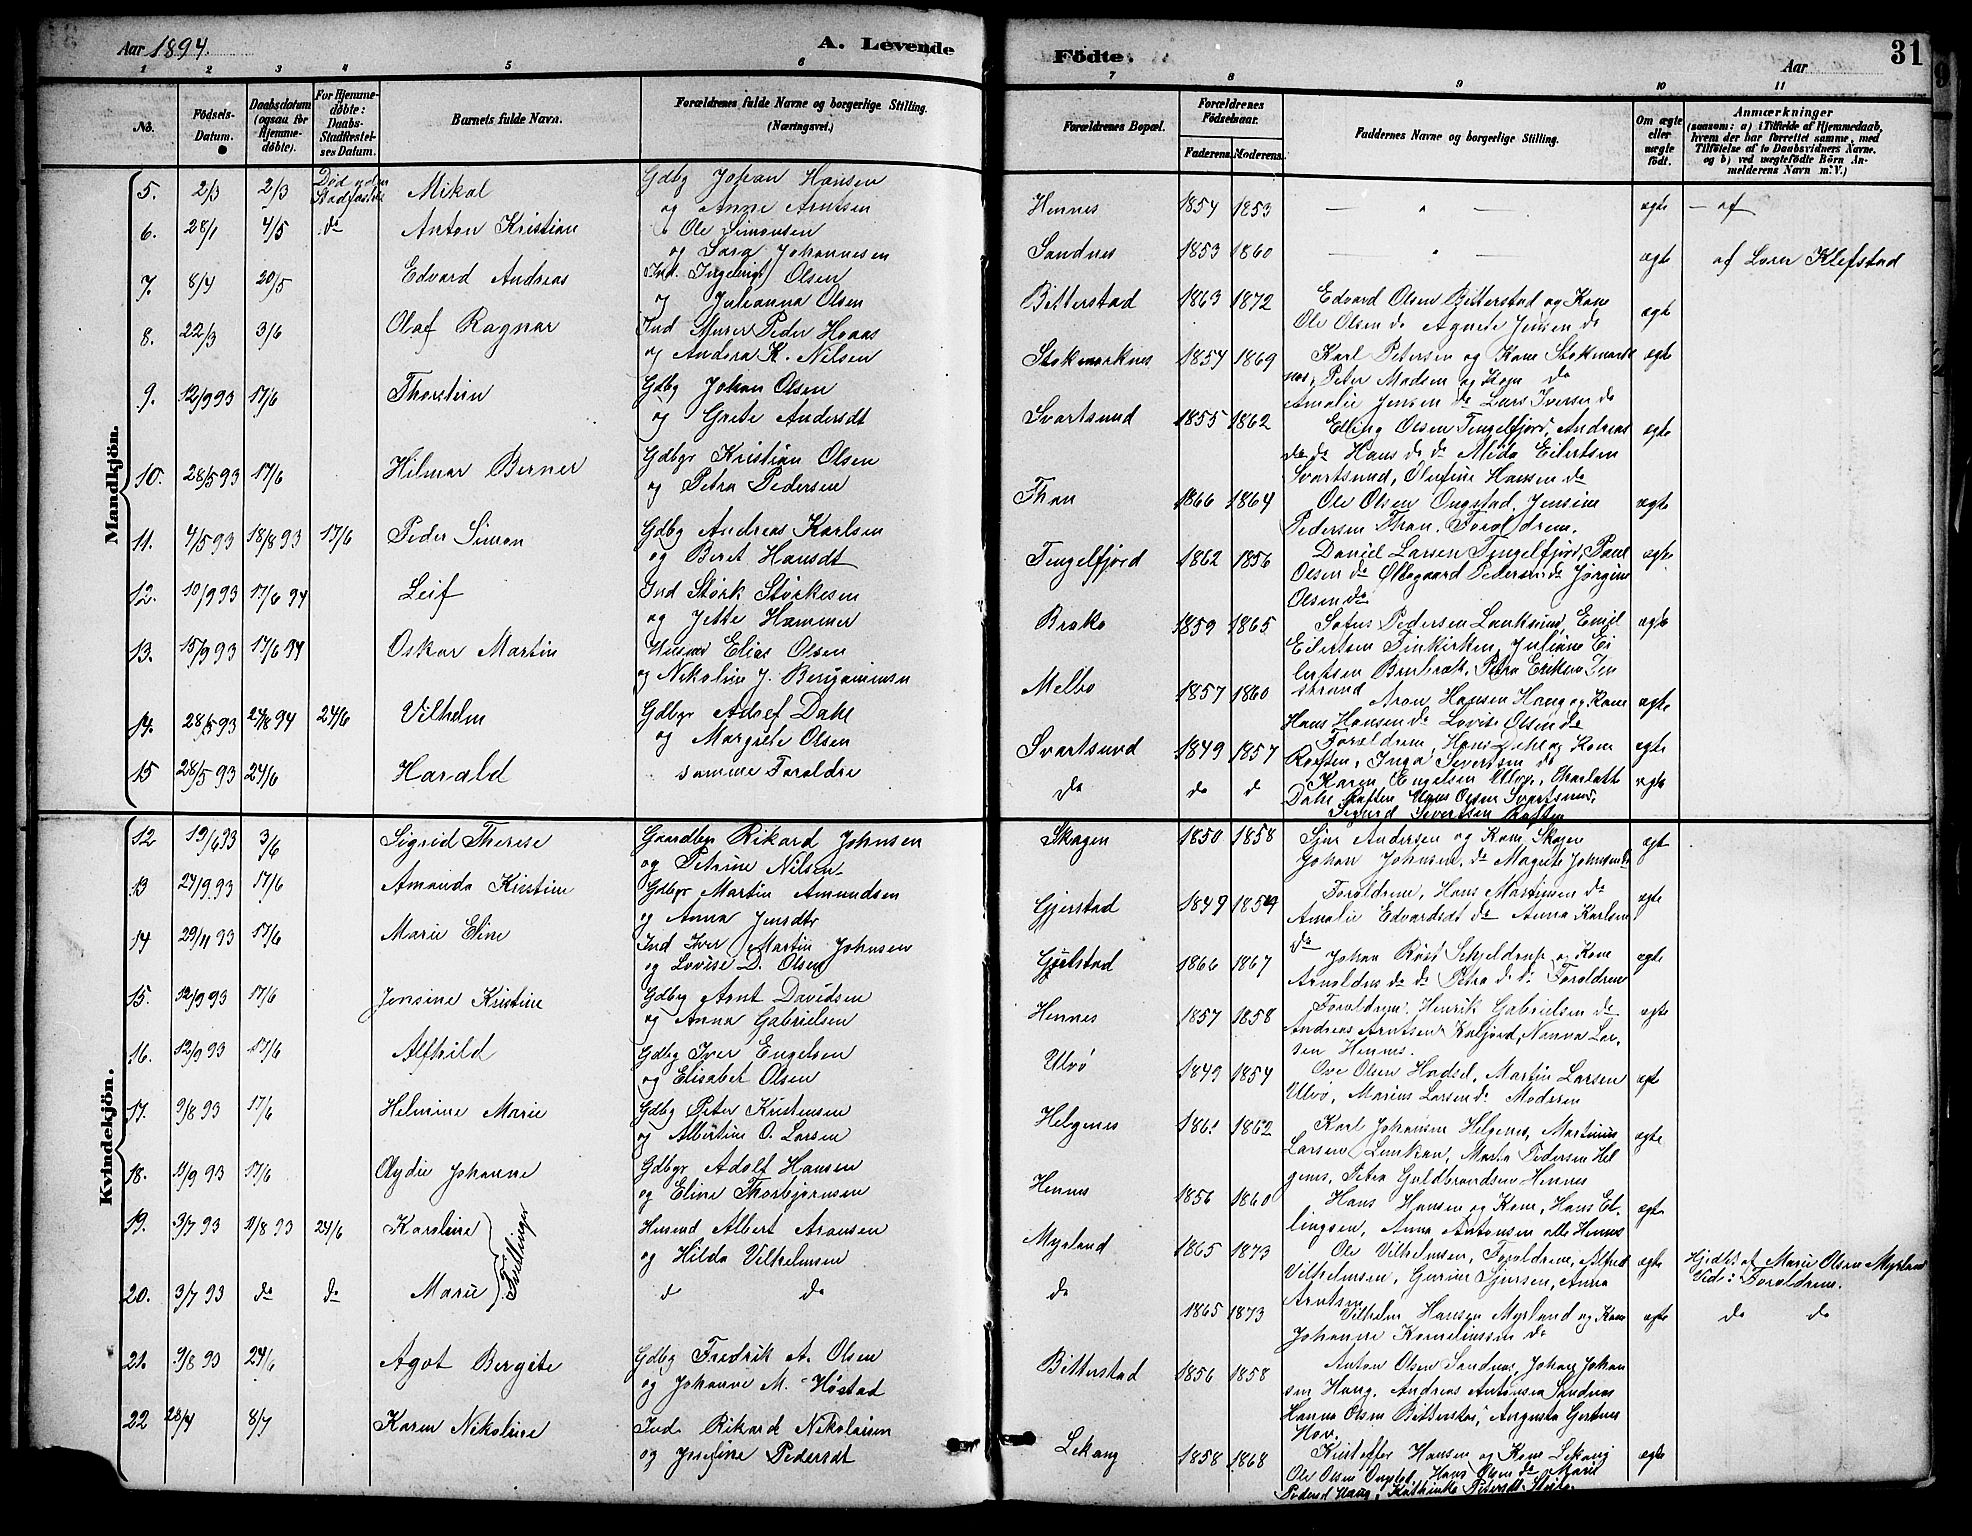 Aar 1894.
A. Levende
Födte.
Aar
31
1 2 3 4 5 6 7 8 9 10 11
No.
Födsels-Datum.
Daabsdatum (ogsaa for Hjemme-döbte).
For Hjemme-döbte: Daabs-Stadfæstel-ses Datum.
Barnets fulde Navn.
Forældrenes fulde Navne og borgerlige Stilling. (Næringsvei.)
Forældrenes Bopæl.
Forældrenes Födselsaar.
Faderens. Moderens.
Faddernes Navne og borgerlige Stilling.
Om ægte eller uægte födt.
Anmærkninger
(saasom: a) i Tilfælde af Hjemmedaab, hvem der har forrettet samme, med Tilföielse af to Daabsvidners Navne. og b) ved uægtefödte Börn An-melderens Navn m. V.)
Mandkjön.
5. 2/3 2/3 Død uden Stadfæstelse Mikal Gdbg Johan Hansen
og Anne Arntsen Hennes 1854 1853 — " — ægte — af
6. 28/1 4/5 do Anton Kristian Ole Simonsen
og Sara Johannesen Sandnes 1853 1860 — " — ægte af Lorn Klefstad
7. 8/4 20/5 Edvard Andreas Ind. Ingebrigt Olsen
og Julianna Olsen Bitterstad 1863 1872 Edvard Olsen Bitterstad og Kone
Ole Olsen do Agnete Jensen do ægte
8. 22/3 3/6 Olaf Ragnar Ind Murer Peder Haas
og Andera K. Nilsen Stokmarknes 1854 1869 Karl Petersen og Kone Stokmark
nes, Peter Madsen og Kone do
Amalie Jensen do Lars Iversen do ægte
9. 12/9 93 17/6 Thorstein Gdbg Johan Olsen
og Grete Andersdt Svartsund 1855 1862 Elling Olsen Tengelfjord, Andreas
do do Hans do do Mida Eilertsen
Svartsund, Olufine Hansen do ægte
10. 28/5 93 17/6 Hilmar Berner Gdbgr Kristian Olsen
og Petra Pedersen Thon 1866 1864 Ole Olsen Ongstad, Jensine
Pedersen Thon. Forældrene. ægte
11. 4/5 93 18/8 93 17/6 Peder Simon Gdbg Andreas Karlsen
og Beret Hansdt Tengelfjord 1862 1856 Daniel Larsen Tengelfjord, Paul
Olsen do Ødegaard Pedersen do Jørgine
Olsen do ægte
12. 10/9 93 17/6 94 Leif Ind Størk Størkesen
og Jette Hammer Broko 1859 1865 Sofus Pedersen Lankund, Emil
Eilertsen Finkirken, Juliane Ei
lertsen Brubræk, Petra Eriksen
strand ægte
13. 15/9 93 17/6 94 Oskar Martin Elias Olsen
og Nikoline J. Benjaminsen Melbo 1857 1860 Aron Hansen Haug og Kone
Hans Hansen do Lovise Olsen do ægte
14. 28/5 93 24/8 94 24/6 Vilhelm Gdbgr Adolf Dahl
og Margrete Olsen Svartsund 1849 1857 Forældrene, Hans Dahl og Kone
Raften, Inga Sivertsen do ægte
15 28/5 93 24/6 Harald samme Foraldre do do do Karen Engelsen Ulvø, Charlotte
Dahl Raften Hans Olsen Svartsund,
Sigurd Sivertsen Raften ægte
Kvindekjön.
12 19/6 93 3/6 Sigrid Therese Gaardbgr Rikard Johnsen
og Petrine Nilsen Skagen 1850 1858 Sjur Andersen og Kone Skagen
Johan Johnsen, do Magrete Johnsen do ægte
13 27/9 93 17/6 Amanda Kristine Gdbgr Martin Amundsen
og Anna Jensdtr Gjerstad 1849 1859 Forældrene, Hans Martinsen do
Amalie Edvardsdt do Anna Karlsen
do ægte
14 29/11 93 17/6 Marie Eline Ind Iver Martin Johnsen
og Lovise D. Olsen Gjelstad 1866 1867 Johan Røst Schjeldrup og Kone
Arnoldus do do Petra do do Foraldrene ægte
15. 12/9 93 17/6 Jensine Kristine Gdbg Arnt Davidsen
og Anna Gabrielsen Hennes 1857 1858 Foraldrene. Henrik Gabrielsen do
Andreas Arntsen Kaljord, Nanna Lar-
sen Hennes. ægte
16. 12/9 93 17/6 Alfhild Gdbg Iver Engelsen
og Elisabet Olsen Ulvø 1849 1854 Ove Olsen Hadsel, Martin Larsen
Ulvø, Marius Larsen do Moderen ægte
17. 9/8 93 17/6 Helmine Marie Gdbg Peter Kristensen
og Albertine O. Larsen Helgenes 1861 1862 Karl Johansen Helgenes, Martinus
Larsen Lunkan, Marta Pedersen Hel
genes, Petra Guldbrandsen Hennes ægte
18. 11/9 93 17/6 Oydie Johanne Gdbgr Adolf Hansen
og Eline Thorbjørnsen Hennes 1856 1860 Hans Hansen og Kone, Hans El-
lingsen, Anna Antonsen alle Hennes ægte
19. 3/7 93 11/8 93 24/6 Karoline Husmd Albert Aronsen
og Hilda Vilhelmsen Myrland 1865 1873 Ole Vilhelmsen, Foraldrene, Alfred
Vilhelmsen, Gurine Sjursen, Anna
Arntsen ægte Hjdbt af Marie Olsen Myrland
Vid: Forældrene.
Tvillinger
20. 3/7 93 do do Marie do do do 1865 1873 Vilhelm Hansen Myrland og Kone
Johanne Kornelinssen do ægte do do
21. 9/8 93 24/6 Agot Bergite Gdbg Fredrik A. Olsen
og Johanne M. Høstad Bitterstad 1856 1858 Anton Olsen Sandnes, Johan Johan
sen Haug, Andreas Antonsen Sandnes
Hanna Olsen Bitterstad, Augusta Gertner
Hov. ægte
22 28/4 8/7 Karen Nikoline Ind. Rikard Nikolaisen
og Josefine Pedersdt Lekang 1858 1868 Kristoffer Hansen og Kone Lekang
Ole Olsen Ongstad, Hans Olsen do Marit
Pedersd Haug, Kathinka Petersdt Stoke. ægte